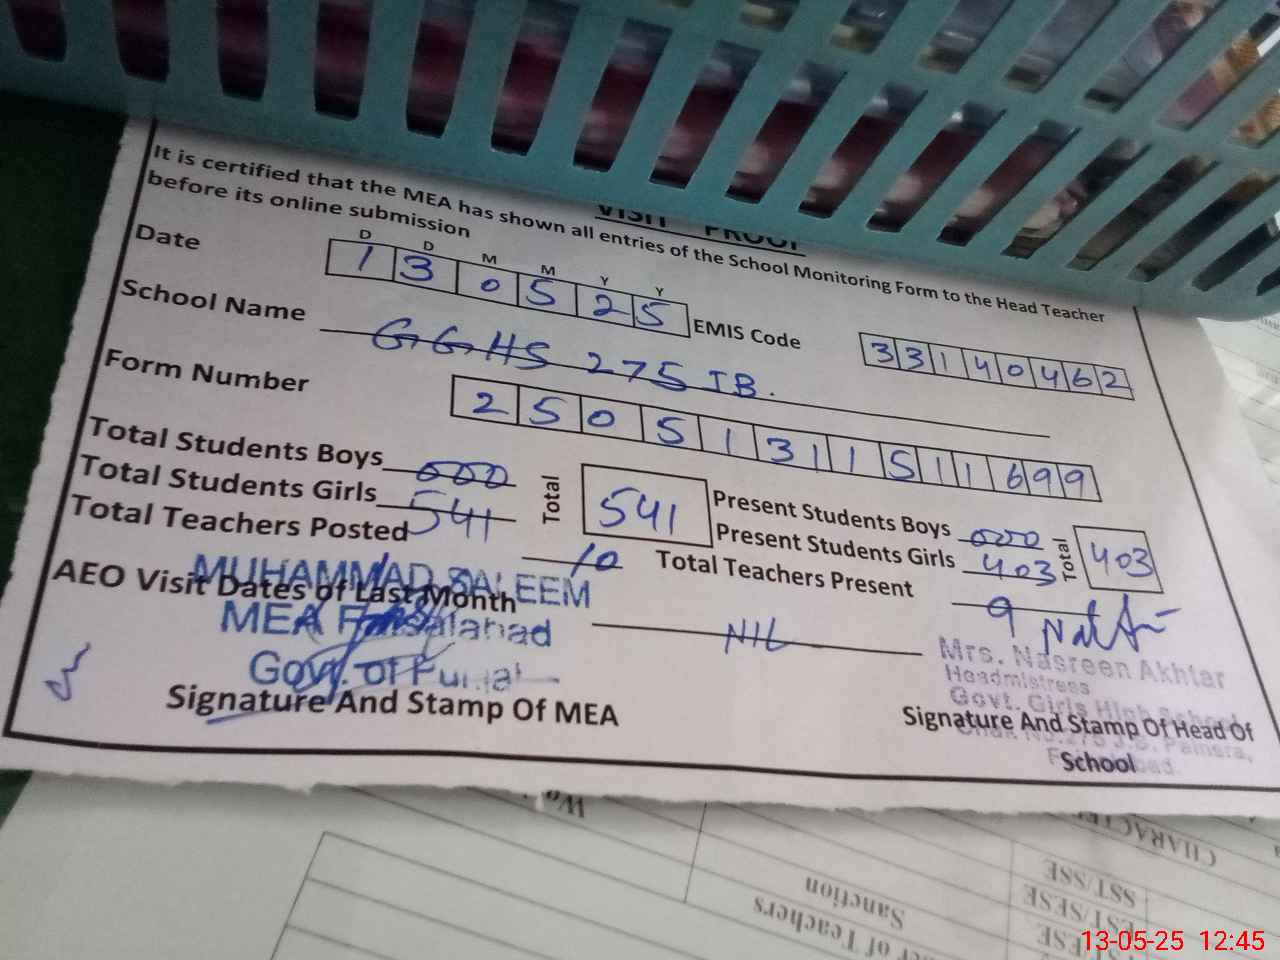 VISIT PROOF
It is certified that the MEA has shown all entries of the School Monitoring Form to the Head Teacher
before its online submission
D D M M Y Y
Date 1 3 0 5 2 5 EMIS Code 3 3 1 4 0 4 6 2
School Name GGHS 275 JB.
Form Number 2 5 0 5 1 3 1 1 5 1 1 6 9 9
Total Students Boys 000 Total 541 Present Students Boys 000 Total 403
Total Students Girls 541 Present Students Girls 403
Total Teachers Posted 10 Total Teachers Present 9
AEO Visit Dates of Last Month NIL
MUHAMMAD SALEEM
MEA Faisalabad
Govt. of Punjab
Signature And Stamp Of MEA
Mrs. Nasreen Akhtar
Headmistress
Govt. Girls High School
Chak No.275 J.B.
Signature And Stamp Of Head Of
School
CHARACTER
SST/SSE
EST/SESE
Sanction
of Teachers
13-05-25 12:45